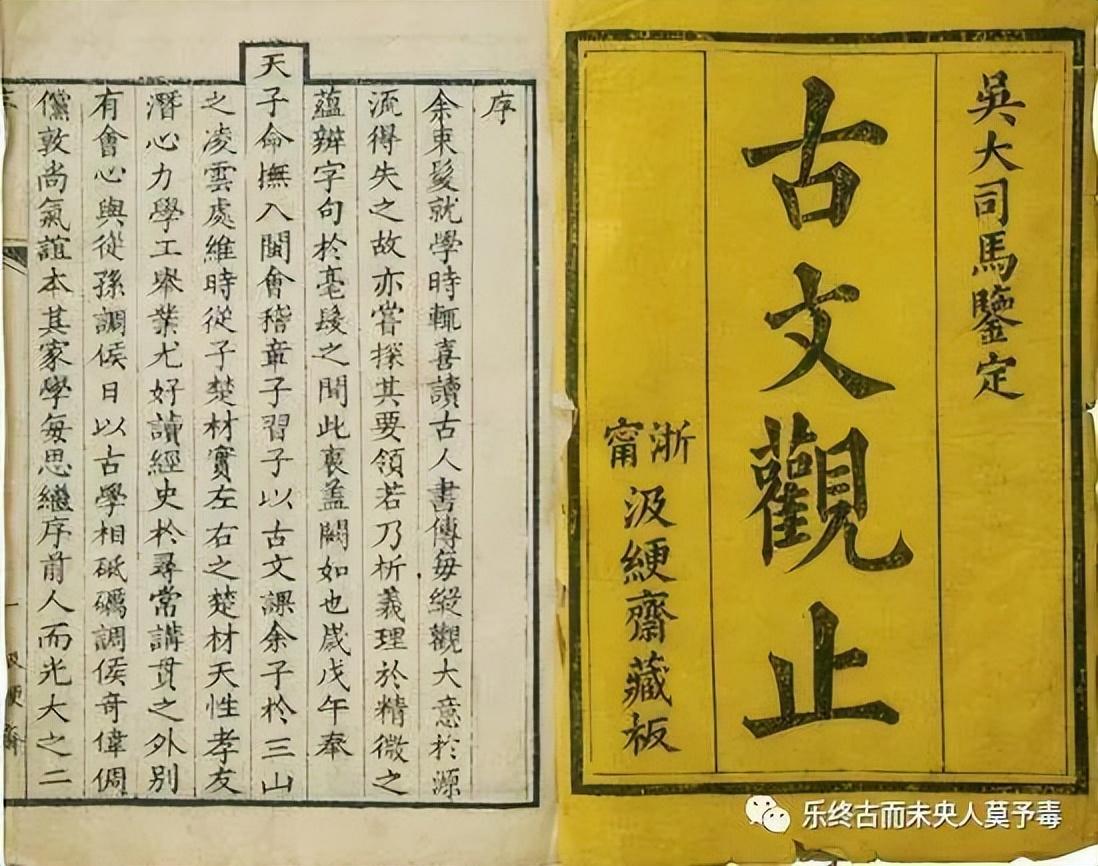 吳大司馬鑒定
古文觀止
浙甯
汲綆齋藏板
序
余束髮就學時輒喜讀古人書傳每縱觀大意於源
流得失之故亦嘗探其要領若乃析義理於精微之
蘊辨字句於毫髮之間此衷蓋闕如也歲戊午奉
天子命撫八閩會稽章子習子以古文課余子於三山
之凌雲處維時從子楚材實左右之楚材天性孝友
潛心力學工舉業尤好讀經史於尋常講貫之外別
有會心與從孫調侯日以古學相砥礪調侯奇偉倜
儻敦尚氣誼本其家學每思繼序前人而光大之二
乐终古而未央人莫予毒